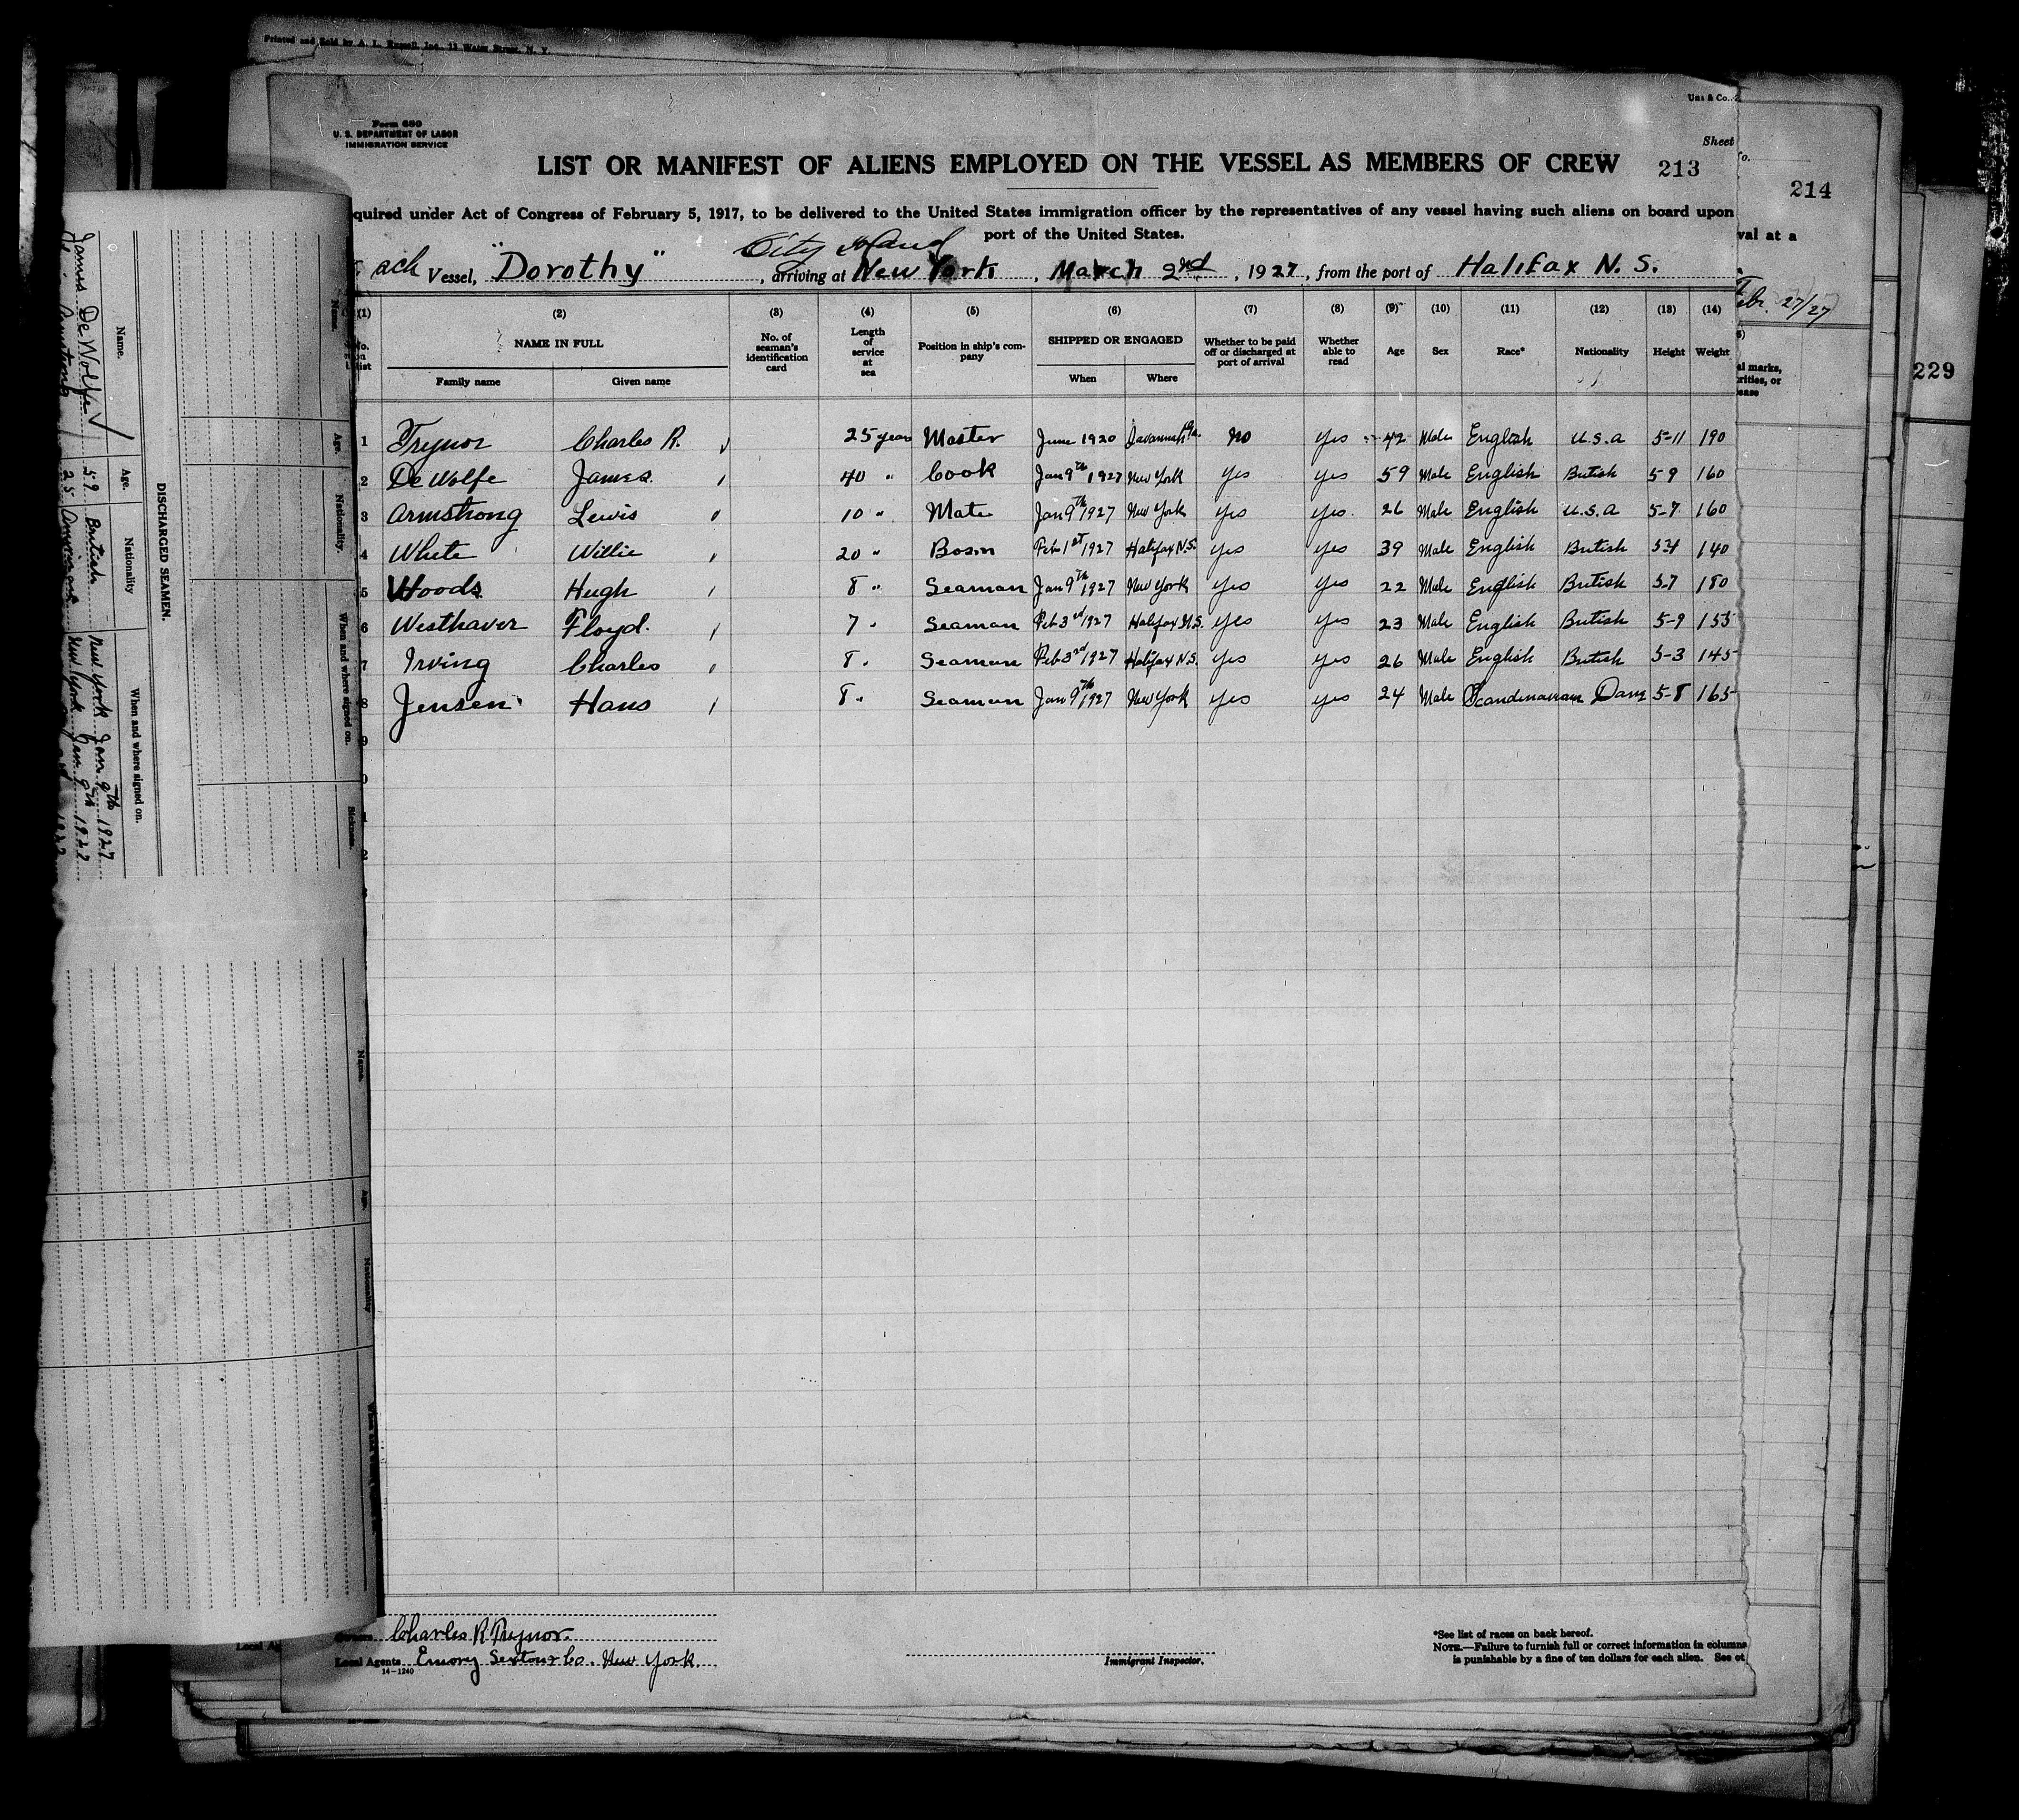 Printed and Sold by A. L. Russell, Inc., 12 Water Street, N. Y.
Form 680
U. S. DEPARTMENT OF LABOR
IMMIGRATION SERVICE
Sheet
LIST OR MANIFEST OF ALIENS EMPLOYED ON THE VESSEL AS MEMBERS OF CREW 213
214
229
quired under Act of Congress of February 5, 1917, to be delivered to the United States immigration officer by the representatives of any vessel having such aliens on board upon
port of the United States.
val at a
City Island
ach Vessel, "Dorothy", arriving at New York, March 2nd, 1927, from the port of Halifax N. S.
Febr. 27/27
(1) (2) (3) (4) (5) (6) (7) (8) (9) (10) (11) (12) (13) (14)
NAME IN FULL No. of seaman's identification card Length of service at sea Position in ship's company SHIPPED OR ENGAGED Whether to be paid off or discharged at port of arrival Whether able to read Age Sex Race* Nationality Height Weight
Family name Given name When Where
1 Treynor Charles R. 25 years Master June 1920 Savannah Ga. No Yes 42 Male English U.S.A 5-11 190
2 De Wolfe James 40 " Cook Jan 9th 1927 New York Yes yes 59 Male English British 5 9 160
3 Armstrong Lewis 10 " Mate Jan 9th 1927 New York Yes yes. 26 Male English U.S.A 5-7 160
4 White Willie 20 " Bosn Feb 1st 1927 Halifax N.S. yes yes 39 Male English British 5 4 140
5 Woods Hugh 8 " Seaman Jan 9th 1927 New York yes yes 22 Male English British 5-7 180
6 Westhaver Floyd. 7 " Seaman Feb 3rd 1927 Halifax N.S. yes yes 23 Male English British 5-9 155
7 Irving Charles 8 " Seaman Feb 3rd 1927 Halifax N.S. yes yes 26 Male English British 5-3 145
8 Jensen Hans 8 " Seaman Jan 9th 1927 New York yes yes 24 Male Scandinavian Dane 5-8 165
Charles R. Treynor.
Local Agents Emory Sexton & Co. New York.
14-1240
Immigrant Inspector.
*See list of races on back hereof.
NOTE.—Failure to furnish full or correct information in columns
is punishable by a fine of ten dollars for each alien. See ot
DISCHARGED SEAMEN.
Name. Age. Nationality When and where signed on.
James De Wolfe 59 British New York Jan 9th 1927
Armstrong 25 American New York Jan 9th 1927
Name. Age. Nationality. When and where signed on. Sickness.
Name. Age. Nationality